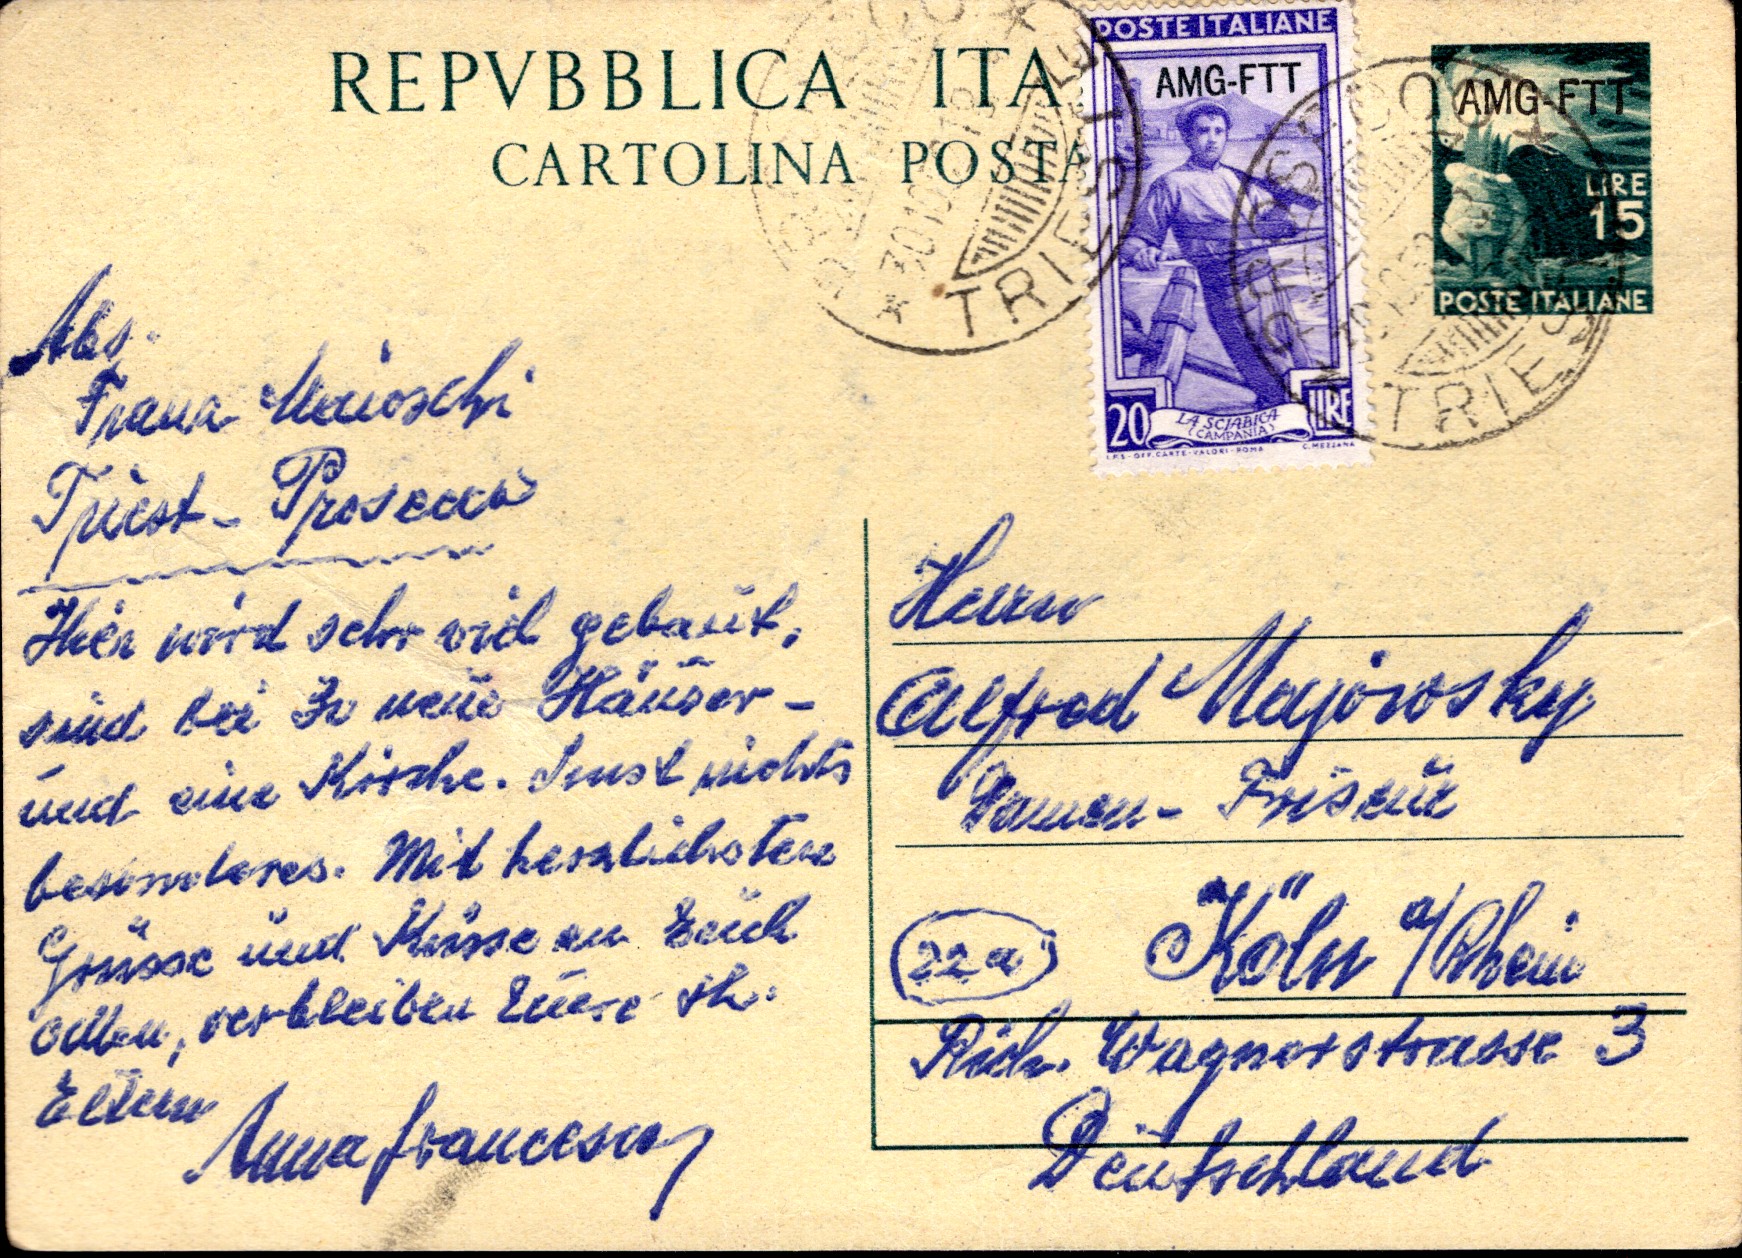 REPVBBLICA ITA
CARTOLINA POSTA
POSTE ITALIANE
AMG-FTT
20 LIRE
LA SCIABICA
(CAMPANIA)
I.P.S.-OFF. CARTE-VALORI-ROMA C. MEZZANA
AMG-FTT
LIRE
15
POSTE ITALIANE
PROSECCO
TRIESTE
PROSECCO
TRIESTE
Abs.
Triest - Prosecco
Hier wird sehr viel gebaut,
sind bei 30 neue Häuser -
und eine Kirche. Sonst nichts
besonderes. Mit herzlichsten
Grüsse und Küsse an Euch
allen, verbleiben Euere
Eltern
Anna francesco
Herrn
Alfred Majowsky
Damen - Friseur
22a Köln a/Rhein
Rich. Wagnerstrasse 3
Deutschland